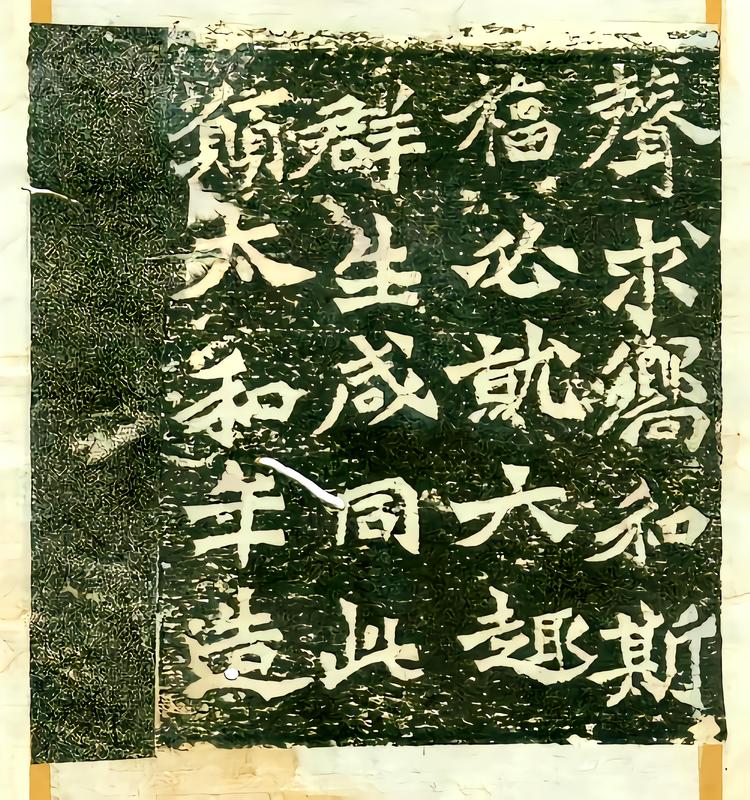 聲求嚮和斯
福必就六趣
群生咸同此
願太和年造